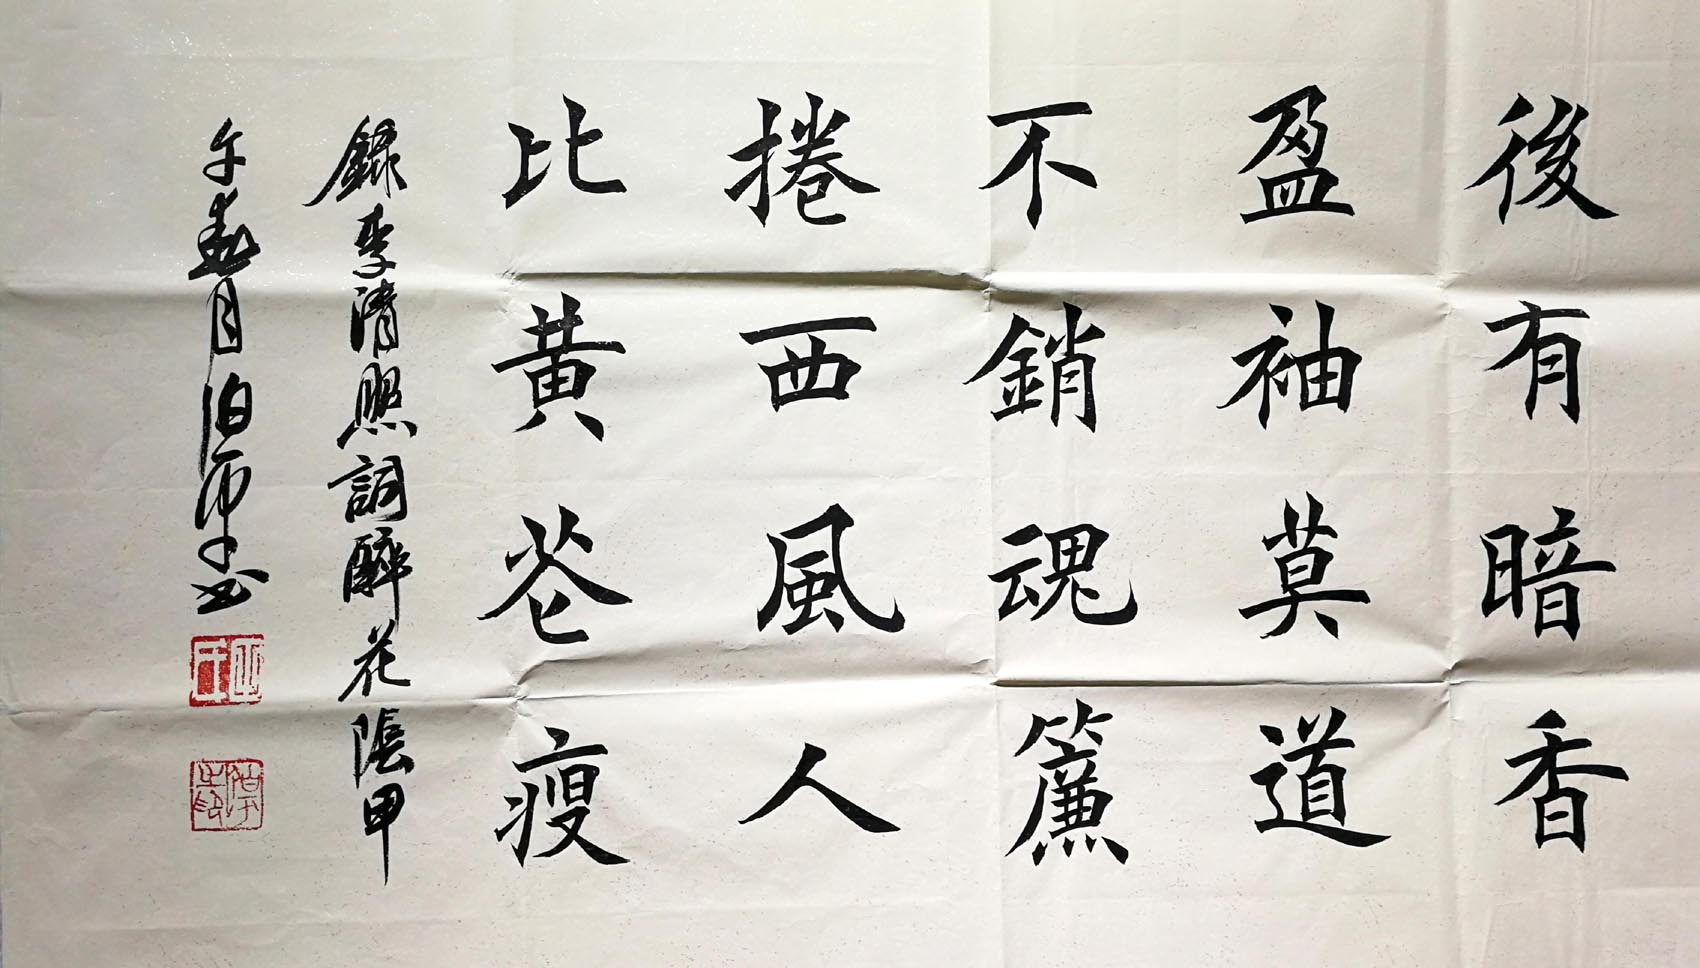 後有暗香
盈袖莫道
不銷魂簾
捲西風人
比黃花瘦
錄李清照詞醉花陰甲
午春月泊帝书